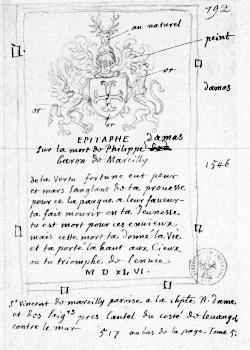 192
au naturel
peint
or
damas
or
or
EPITAPHE damas
Sur la mort de Philippe
baron de Marcilly
1546
de ta Vertu fortune eut peur
et mars sanglant de ta prouesse
pour ce la parque a leur faueur
ta fait mourir en ta Jeunesse.
tu est mort pour ces enuieux
mais cette mort ta donné la Vie
et ta porté la haut aux Cieux
ou tu triomphe de lenuie
M D XL VI.
St Vincent de marcilly paroisse a la chplle N. dame
et des seigrs pres Lautel du costé de leuangile
contre le mur
517 au bas de la page. Tome 5.